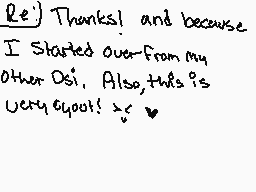 Re:) Thanks! and because
I started over from my
other Dsi. Also, this is
very cyoot! >.< ♥